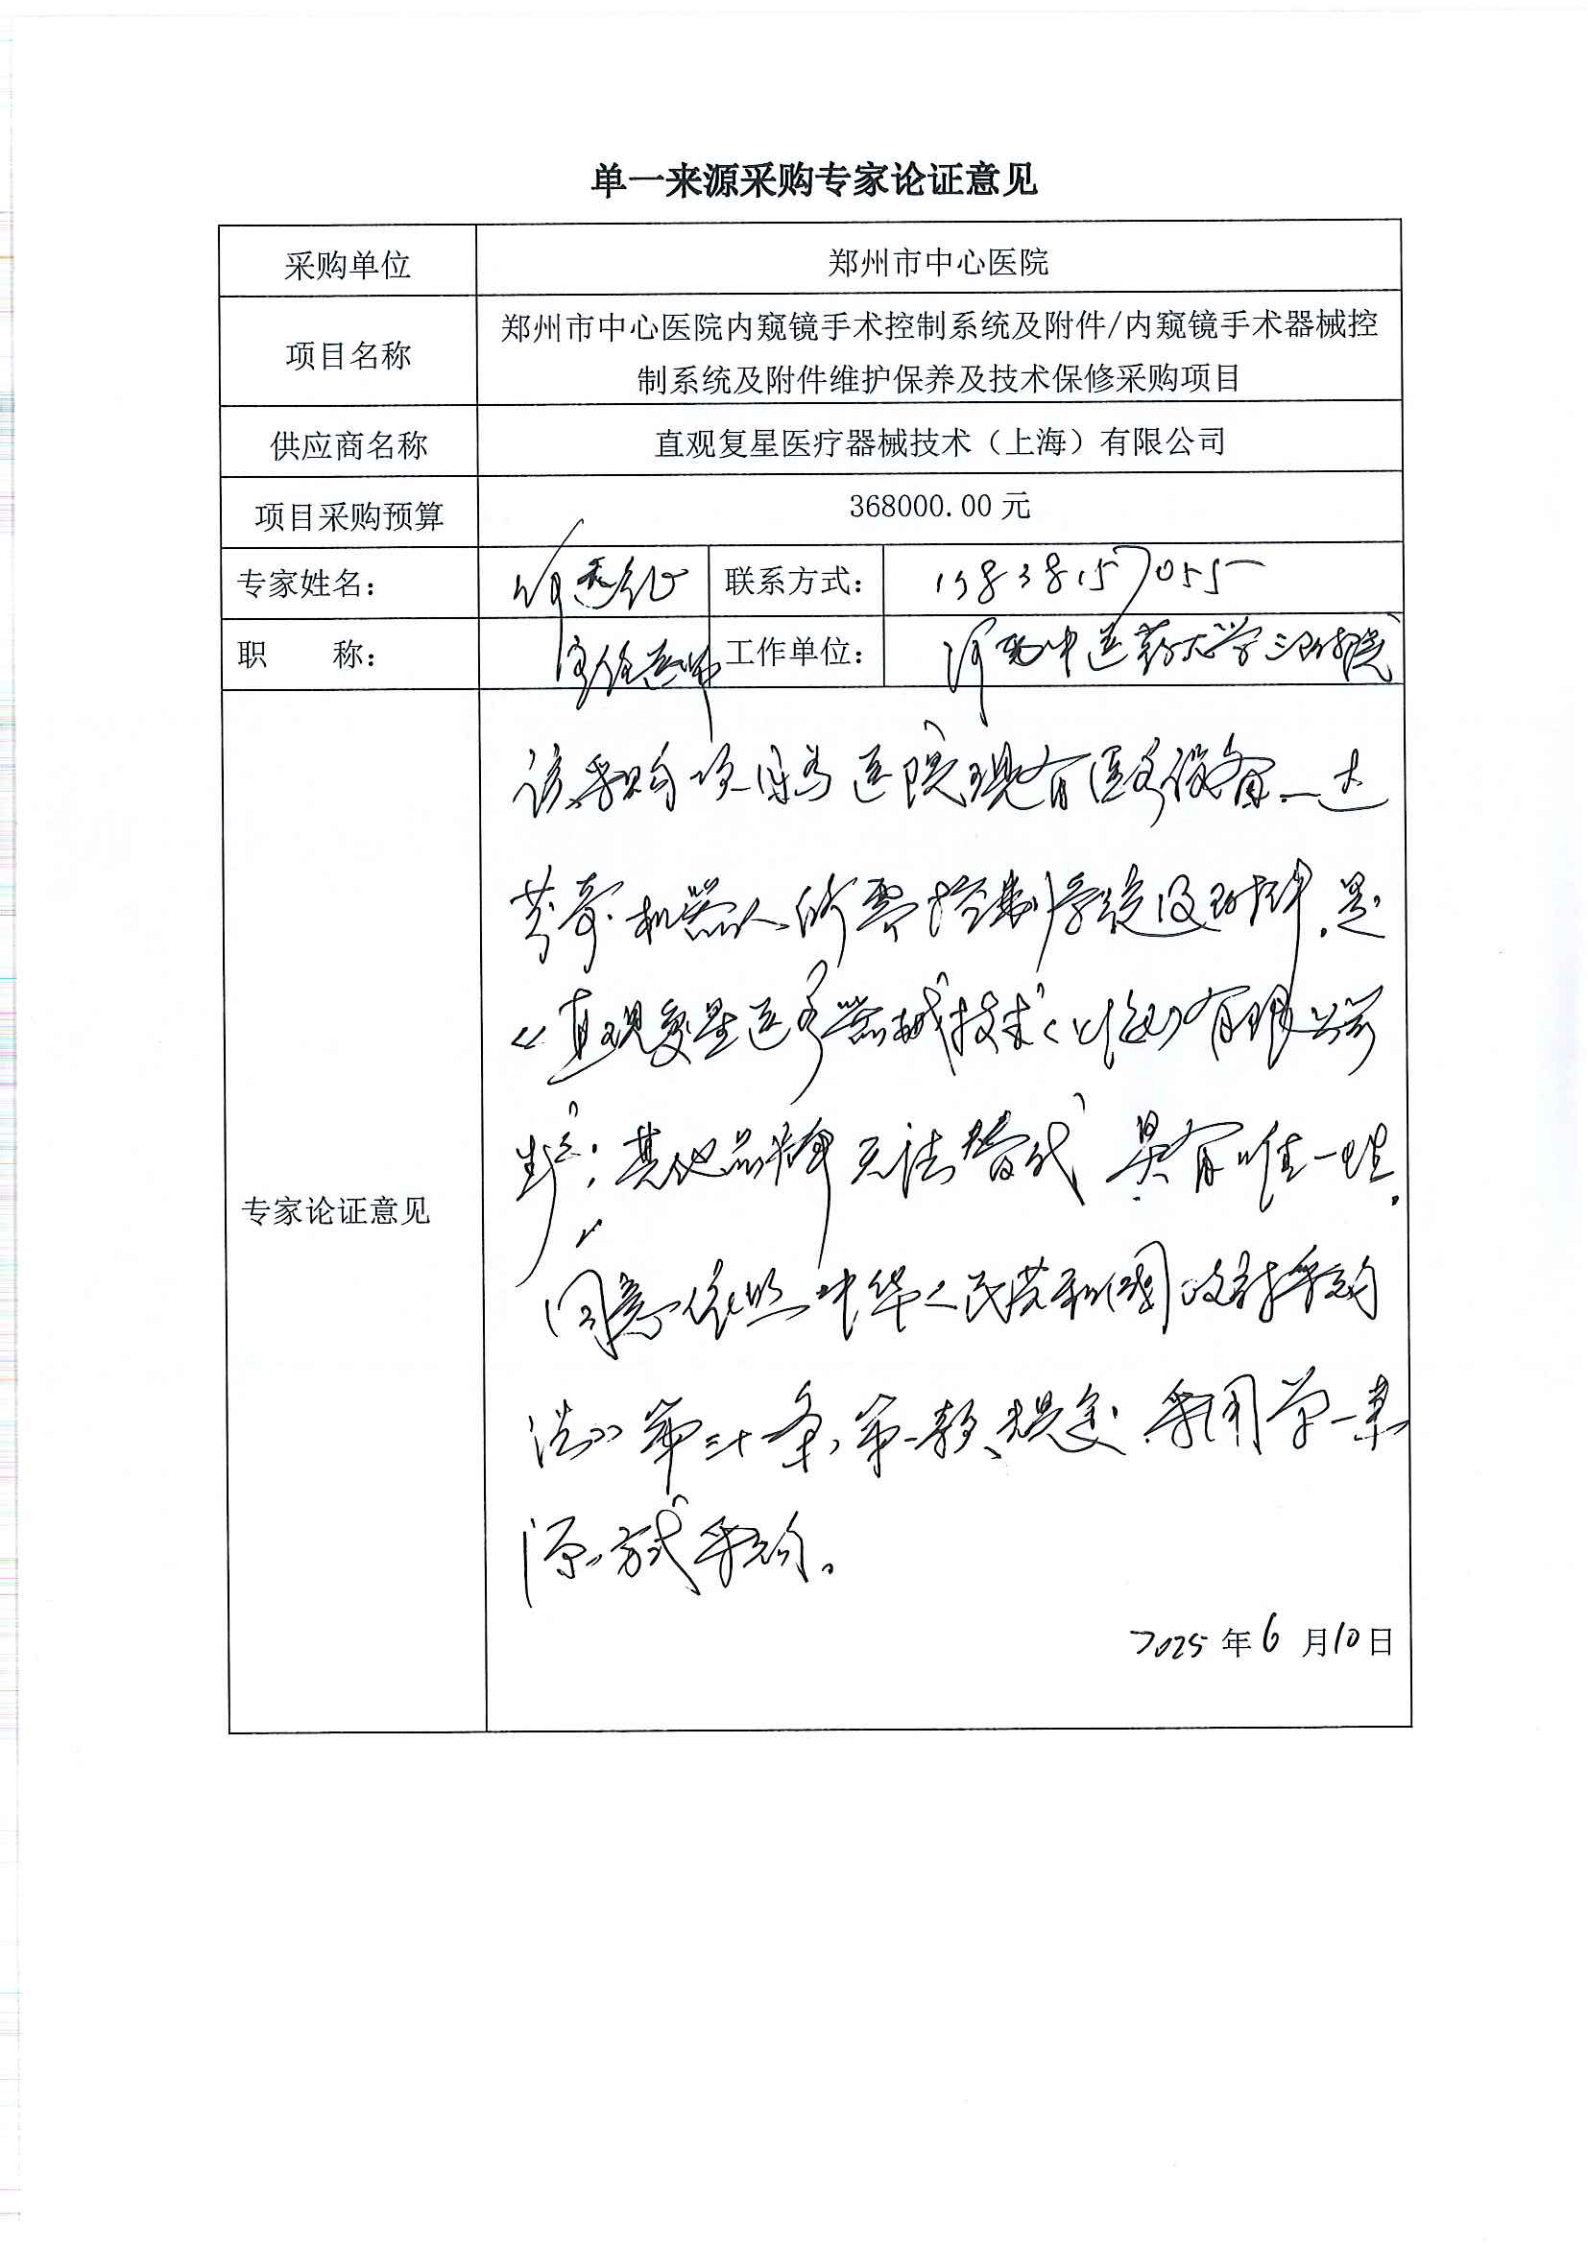 单一来源采购专家论证意见
采购单位
郑州市中心医院
项目名称
郑州市中心医院内窥镜手术控制系统及附件/内窥镜手术器械控
制系统及附件维护保养及技术保修采购项目
供应商名称
直观复星医疗器械技术（上海）有限公司
项目采购预算
368000.00 元
专家姓名：
联系方式：
13838157055
职 称：
主任医师
工作单位：
河南中医药大学三附院
专家论证意见
该采购项目为医院现有医疗设备—达
芬奇机器人所需控制系统及附件，是
《直观复星医疗器械技术（上海）有限公司
生产；其他品牌无法替代 具有唯一性。
同意依照 中华人民共和国政府采购
法》第三十条，第一款规定 采用单一来
源方式采购。
2025 年 6 月 10 日